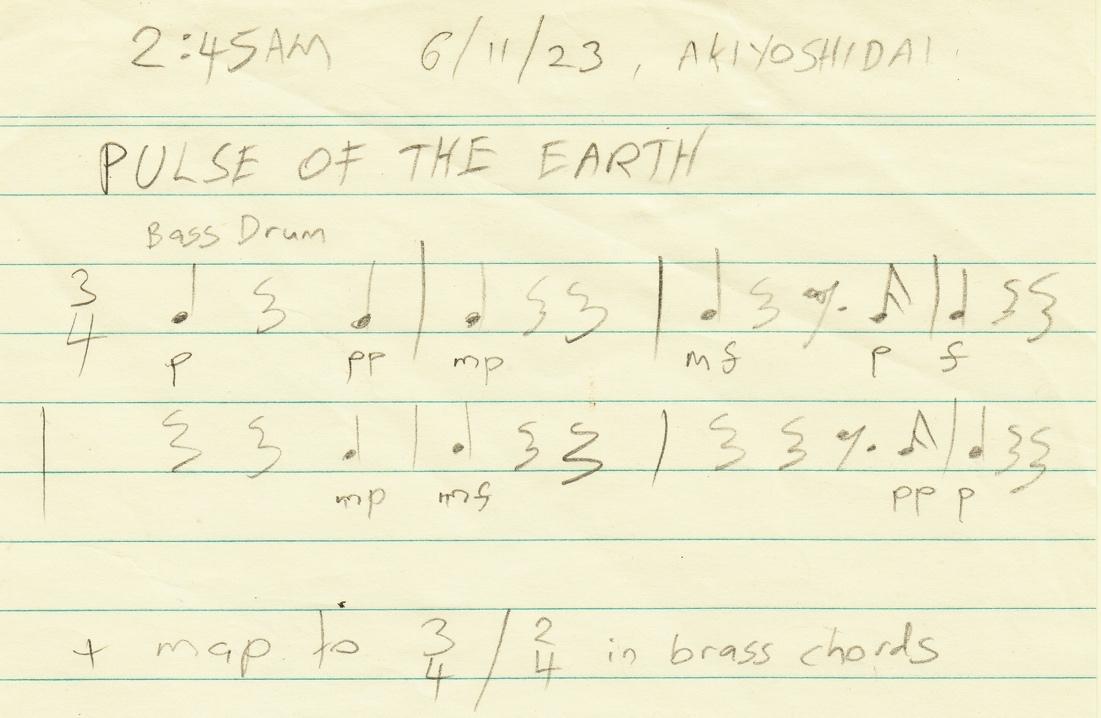 2:45AM 6/11/23, AKIYOSHIDAI
PULSE OF THE EARTH
Bass Drum
3/4
p pp mp mf p f
mp mf pp p
+ map to 3/4 / 2/4 in brass chords